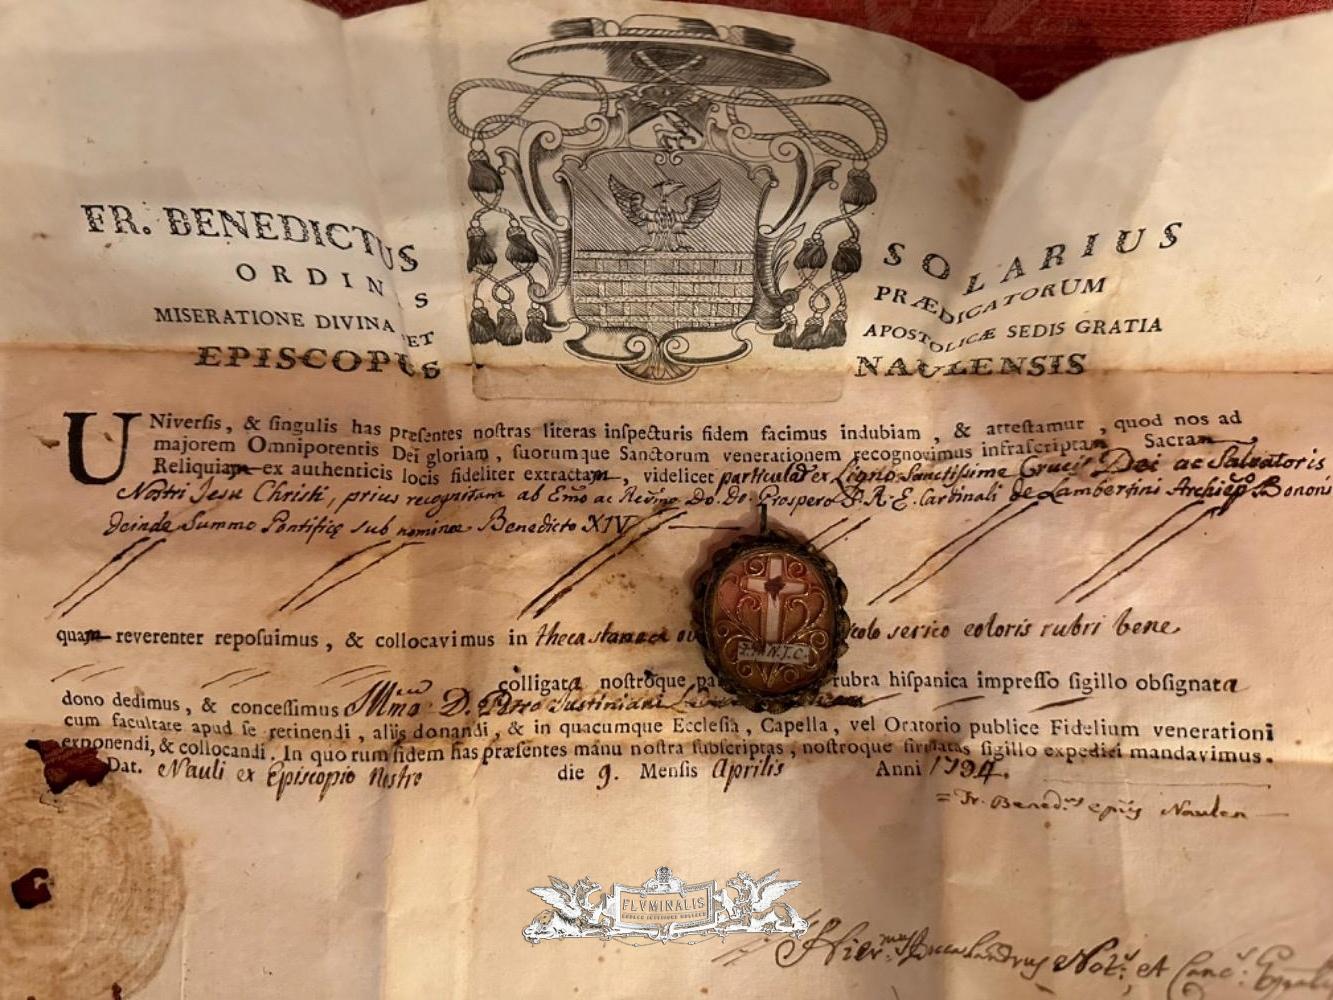 FR. BENEDICTUS SOLARIUS
ORDINIS PRÆDICATORUM
MISERATIONE DIVINA ET APOSTOLICÆ SEDIS GRATIA
EPISCOPUS NAULENSIS
UNiversis, & singulis has præsentes nostras literas inspecturis fidem facimus indubiam, & attestamur, quod nos ad
majorem Omnipotentis Dei gloriam, suorumque Sanctorum venerationem recognovimus infrascriptam Sacram
Reliquiam ex authenticis locis fideliter extractam, videlicet particulas ex Ligno Sanctissime Crucis Dei ac Salvatoris
Nostri Jesu Christi, prius recognitam ab Emo ac Do. Do. Prospero S. R. E. Cardinali de Lambertini Archiepo Bononi
deinde Summo Pontifice sub nomine Benedicto XIV
quam reverenter reposuimus, & collocavimus in theca stannea serico coloris rubri bene
colligata nostroque rubra hispanica impresso sigillo obsignata
dono dedimus, & concessimus Illmo D. Petro Justiniani
cum facultate apud se retinendi, aliis donandi, & in quacumque Ecclesia, Capella, vel Oratorio publice Fidelium venerationi
exponendi, & collocandi. In quorum fidem has præsentes manu nostra subscriptas, nostroque firmatas sigillo expediri mandavimus.
Dat. Nauli ex Episcopio Nostro die 9. Mensis Aprilis Anni 1794.
= Fr. Bened.us Naulen
J.N.J.C.
FLVMINALIS
Hier.mus Not.s et Canc.s